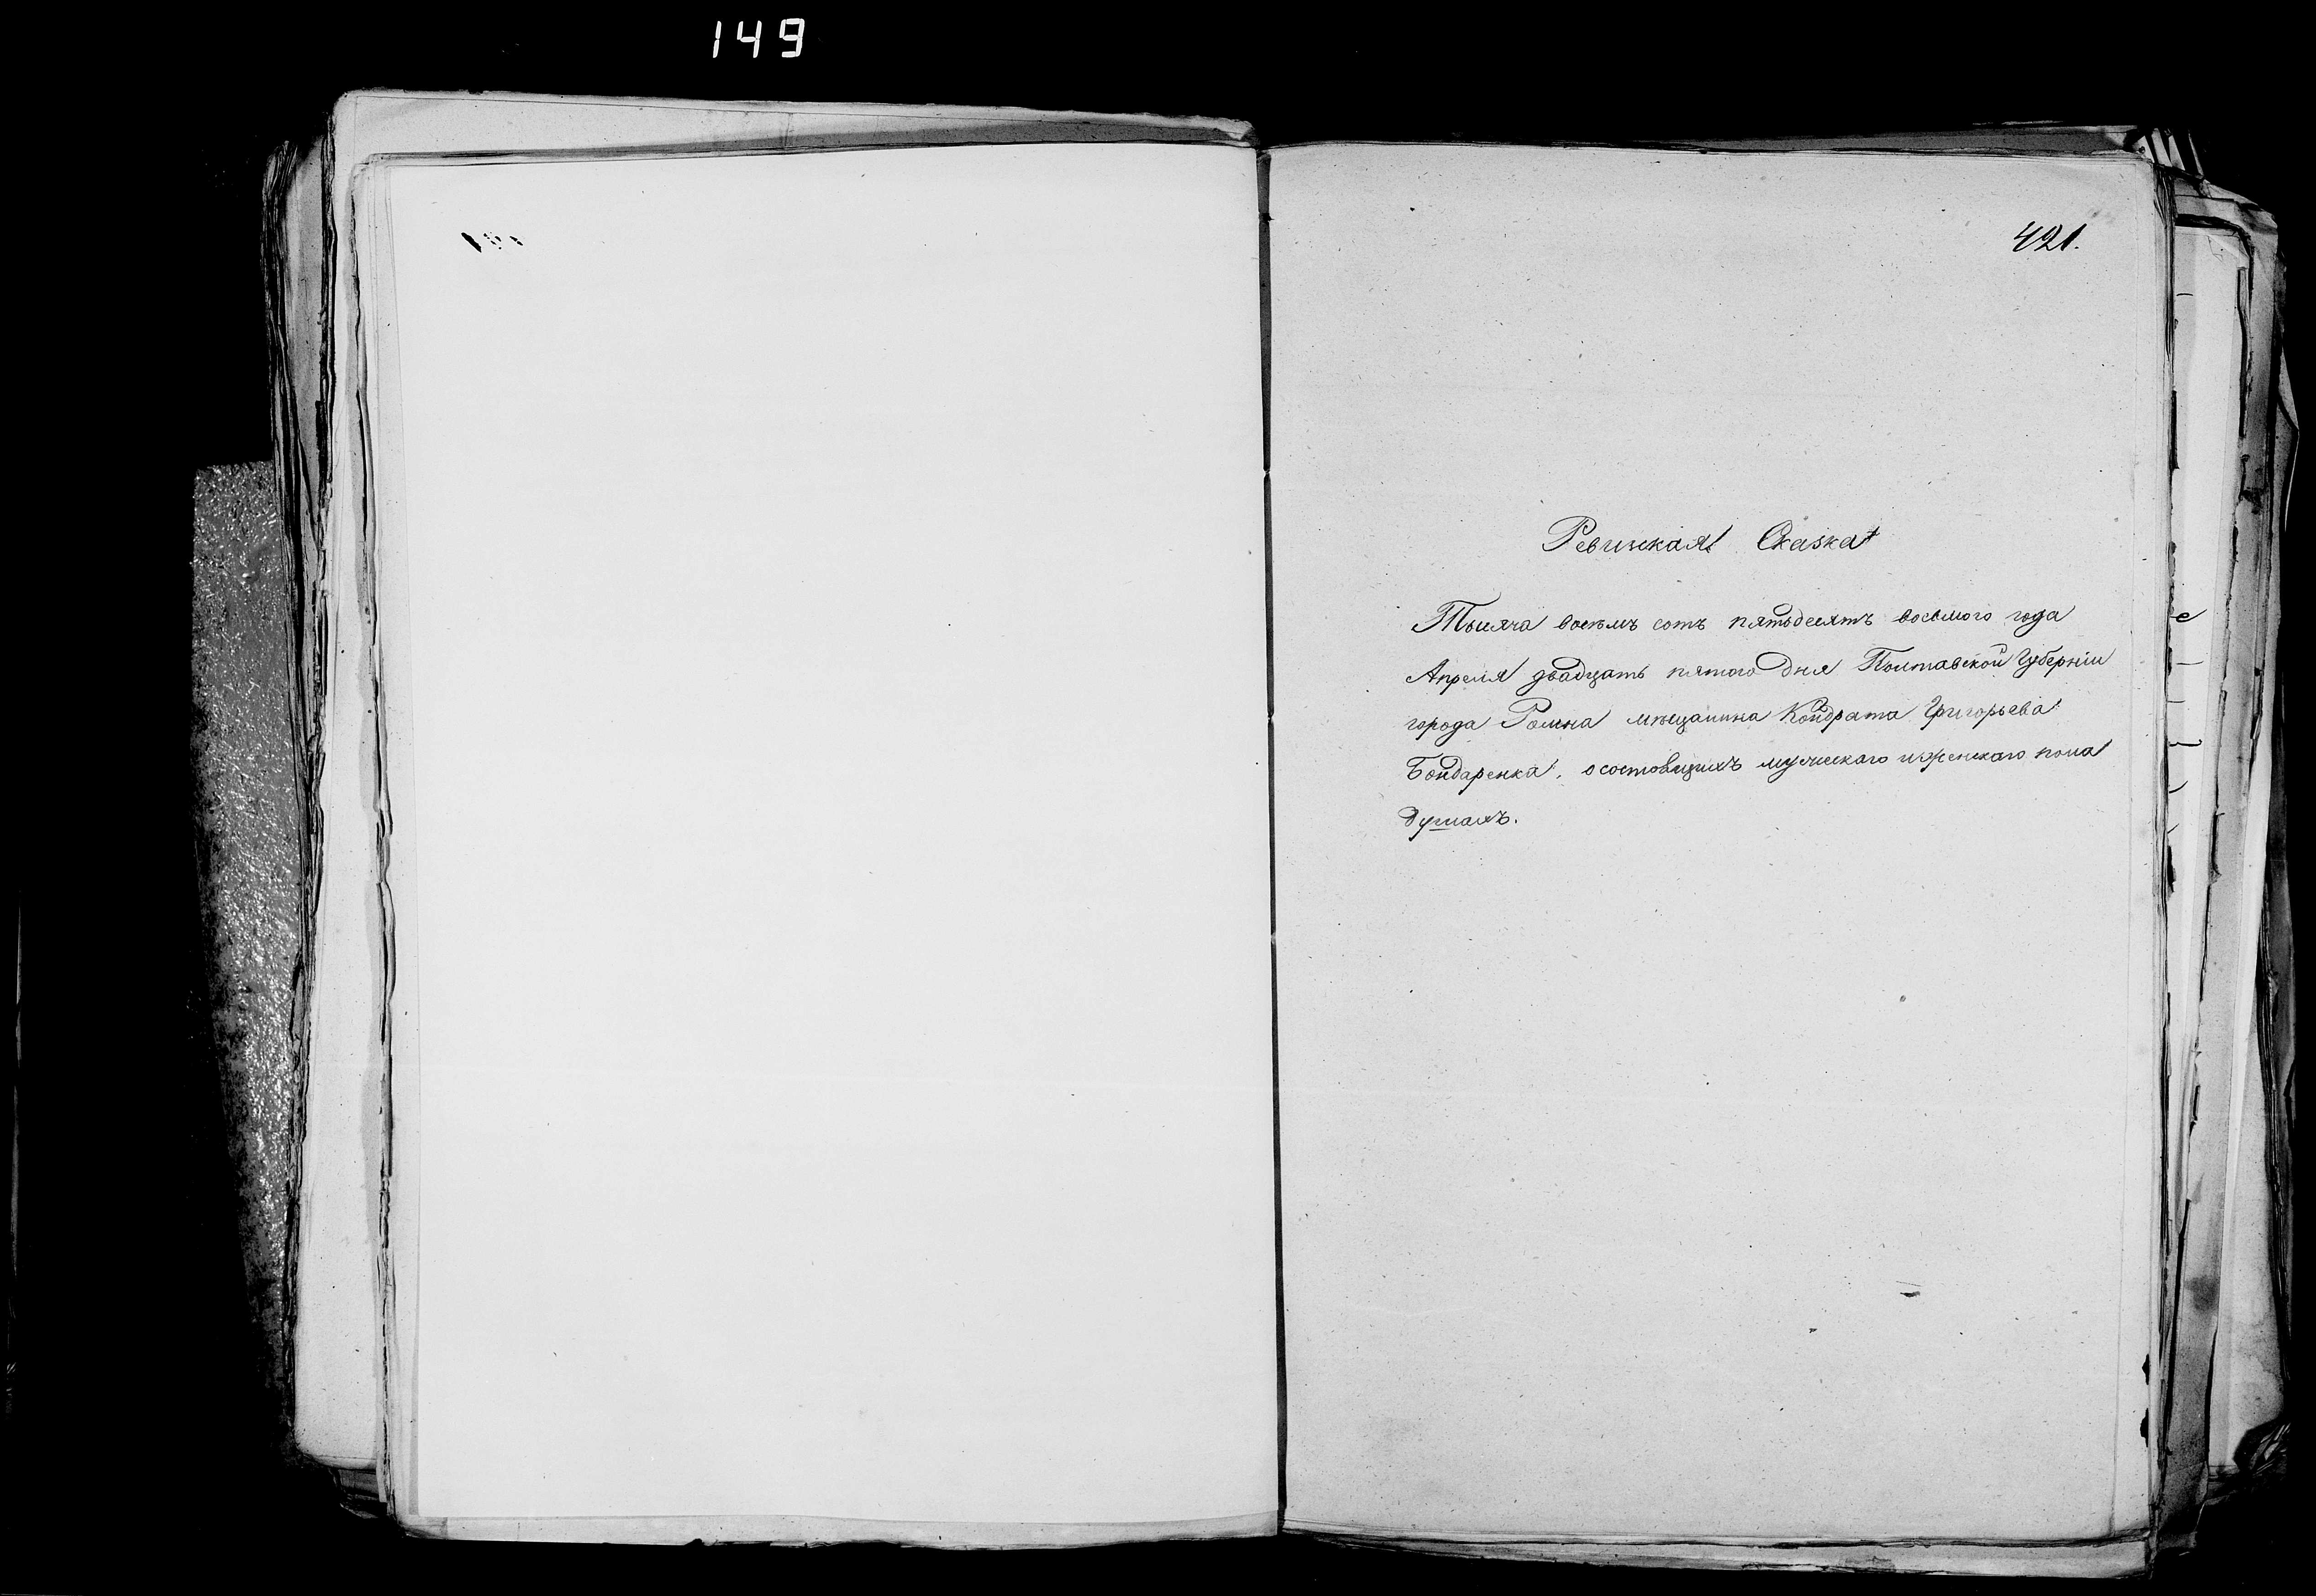 149
421.
Ревизская Сказка
Тысяча восемь сотъ пятьдесятъ восьмого года
Апреля двадцать пятого Дня Полтавской Губерніи
города Ромна мѣщанина Кондрата Григорьева
Бондаренка, о состоящихъ мужескаго и женскаго пола
душахъ.